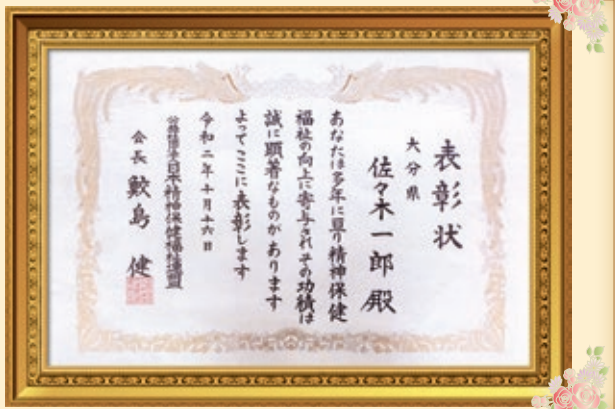 表彰状
大分県
佐々木一郎 殿
あなたは多年に亘り精神保健
福祉の向上に寄与されその功積は
誠に顕著なものがあります
よってここに表彰します
令和二年十月十六日
公益社団法人日本精神保健福祉連盟
会長 鮫島 健